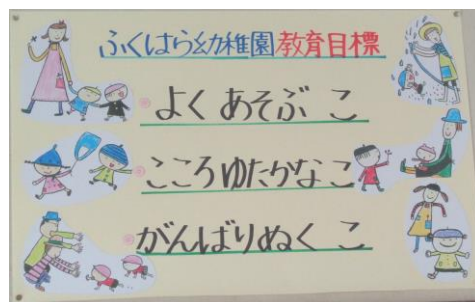 ふくはら幼稚園教育目標
よくあそぶ こ
こころゆたかなこ
がんばりぬく こ